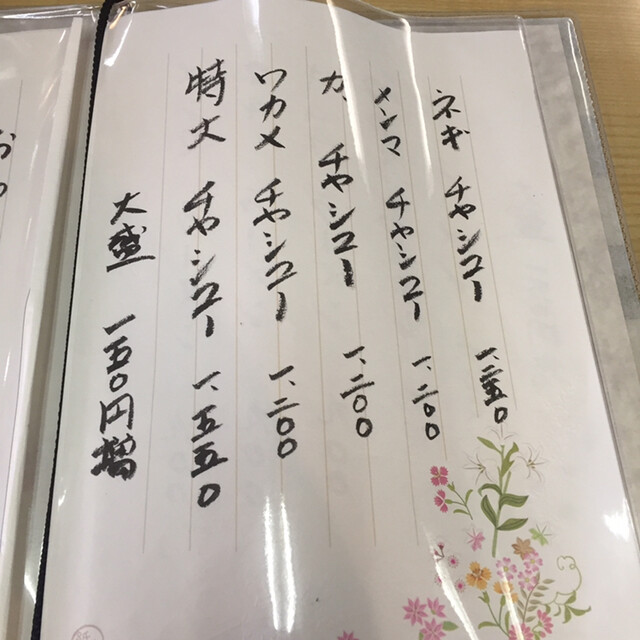 ネギ チャシュー 一、二五〇
メンマ チャシュー 一、二〇〇
カ、 チャシュー 一、二〇〇
ワカメ チャシュー 一、二〇〇
特大 チャシュー 一、五五〇
大盛 一五〇円増